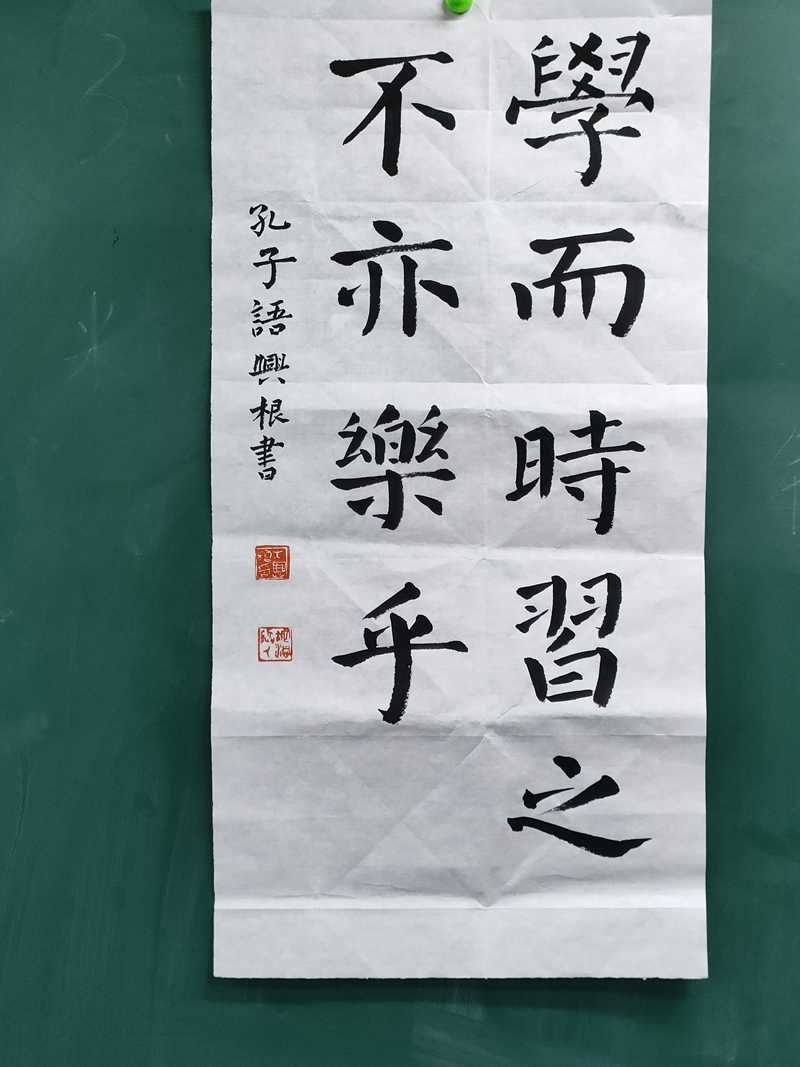 學而時習之
不亦樂乎
孔子語興根書